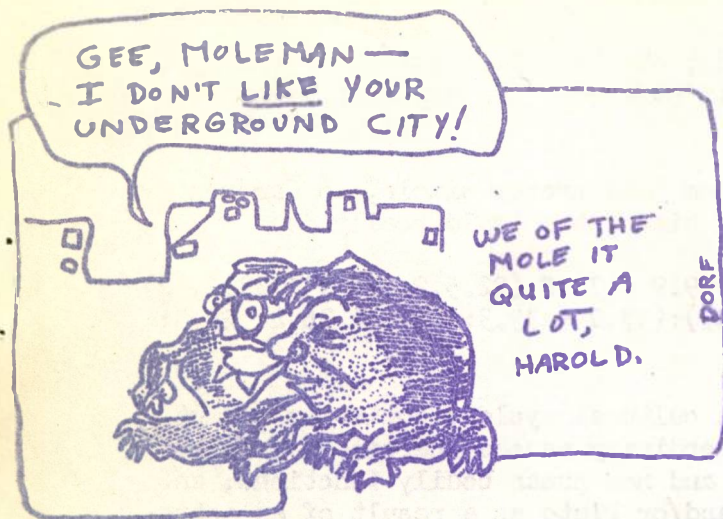 GEE, MOLEMAN —
I DON'T LIKE YOUR
UNDERGROUND CITY!
WE OF THE
MOLE IT
QUITE A
LOT,
HAROLD.
DORF